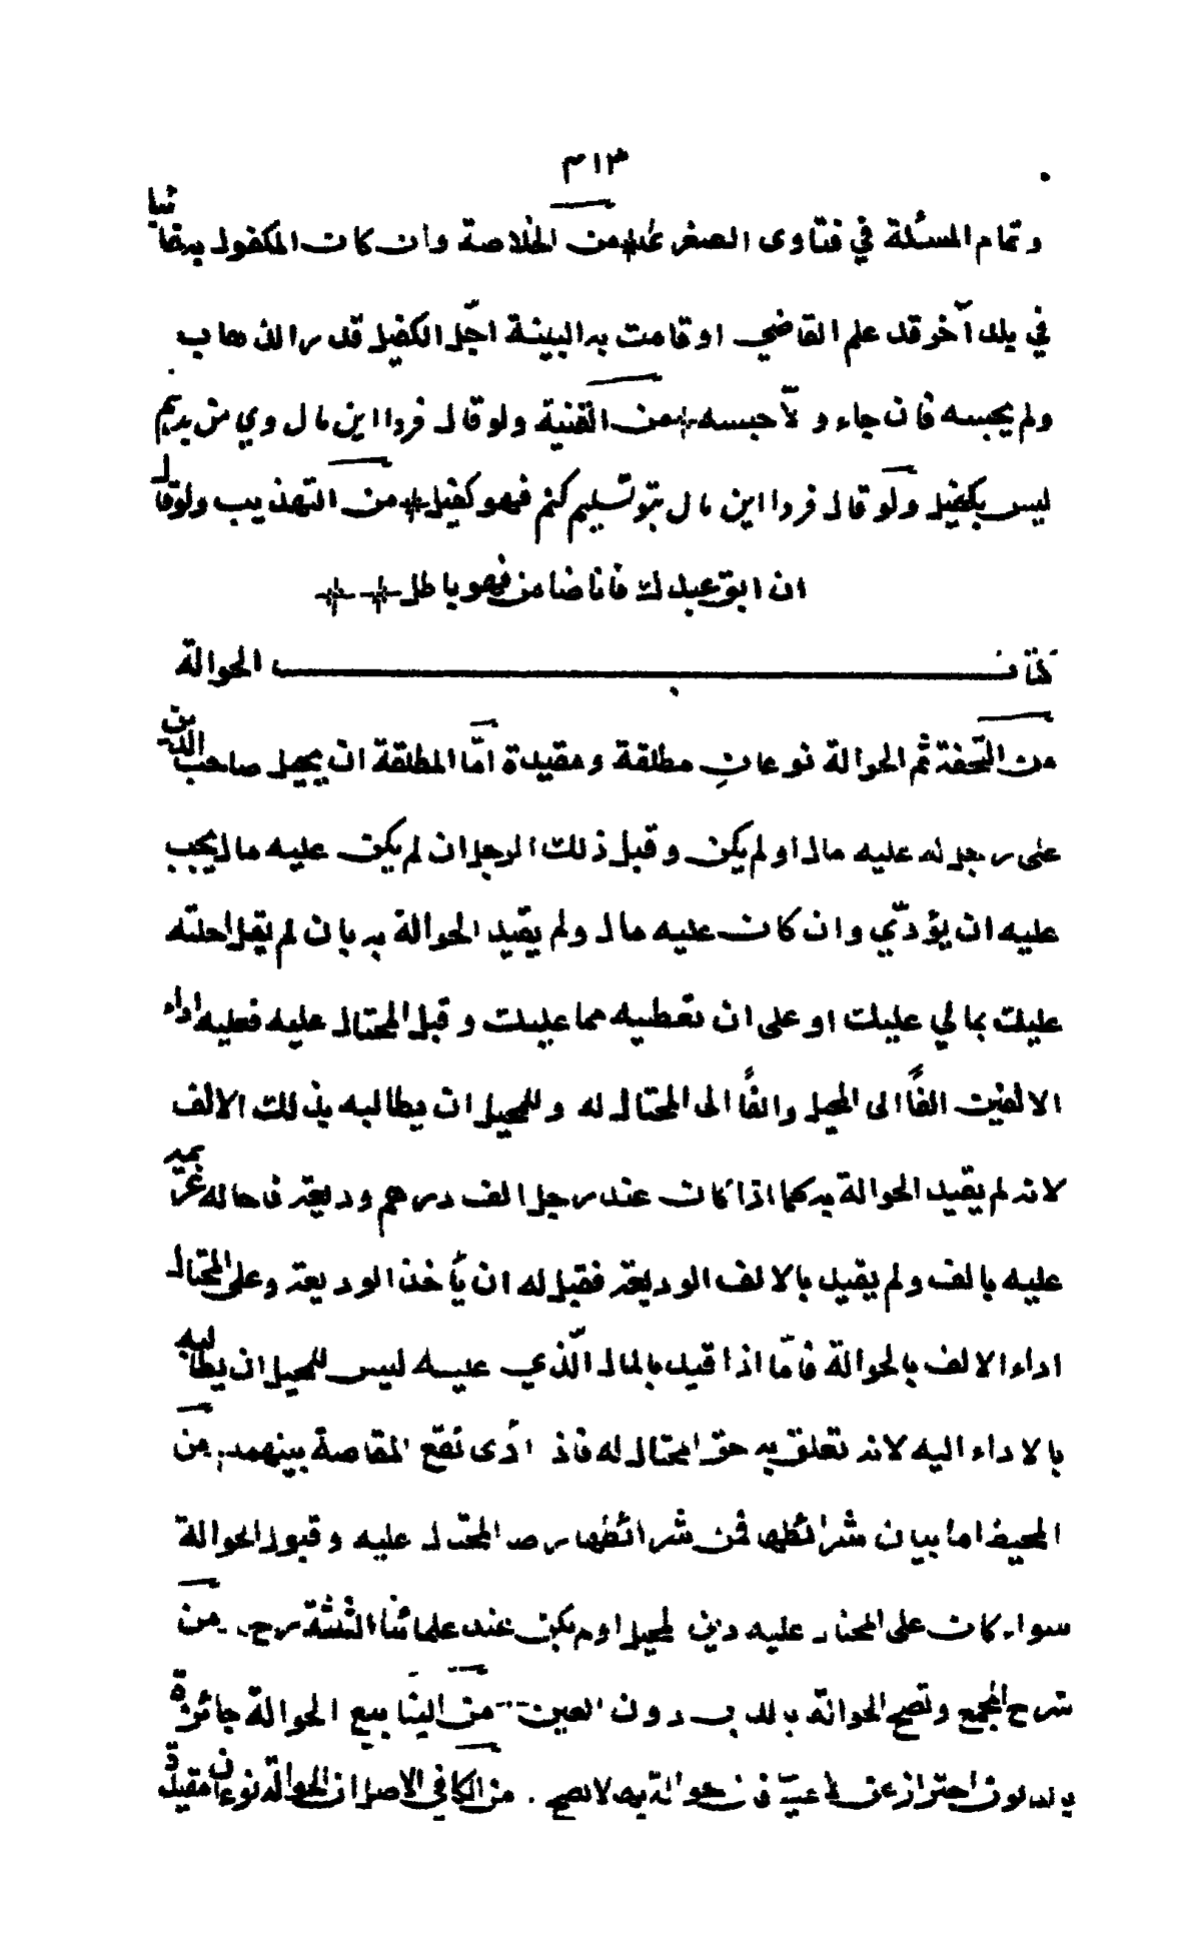 ٣١٣
وتمام المسئلة في فتاوى الصغرى من الخلاصة وان كان المكفول به غائبا
في بلد آخر قد علم القاضي او قامت به البينة اجّل الكفيل قدر الذهاب
ولم يحبسه فان جاء و لاّ حبسه من القنية ولو قال فردا اين مال وي من بديم
ليس بكفيل ولو قال فردا اين مال بتو تسليم كنم فهو كفيل من التهذيب ولو قال
ان ابق عبدك فانا ضامن فهو باطل
كتاب الحوالة
من التحفة ثم الحوالة نوعان مطلقة ومقيدة امّا المطلقة ان يحيل صاحب الدين
على رجل له عليه مال او لم يكن وقبل ذلك الرجل ان لم يكن عليه مال يجب
عليه ان يؤدّي وان كان عليه مال ولم يقيد الحوالة به بان لم يقل احلته
عليك بما لي عليك او على ان تعطيه مما عليك وقبل المحتال عليه فعليه اداء
الالفين الفًا الى المحيل والفًا الى المحتال له وللمحيل ان يطالبه بذلك الالف
لانه لم يقيد الحوالة به كما اذا كان عند رجل الف درهم وديعة فاحاله غريمه
عليه بالف ولم يقيد بالالف الوديعة فقبل له ان يأخذ الوديعة وعلى المحتال
اداء الالف بالحوالة فامّا اذا قيد بالمال الّذي عليه ليس للمحيل ان يطالبه
بالاداء اليه لانه تعلق به حق المحتال له فاذا ادّى تقع المقاصة بينهما من
المحيط اما بيان شرائطها فمن شرائطها رضا المحتال عليه وقبول الحوالة
سواء كان على المحتال عليه دين للمحيل او لم يكن عند علمائنا الثلثة رح من
شرح المجمع وتصح الحوالة بالدين دون العين من الينا بيع الحوالة جائزة
بالديون احتراز عن الاعيان فان حوالة بها لا تصح . من الكافي الاصل ان الحوالة نوعان مقيدة